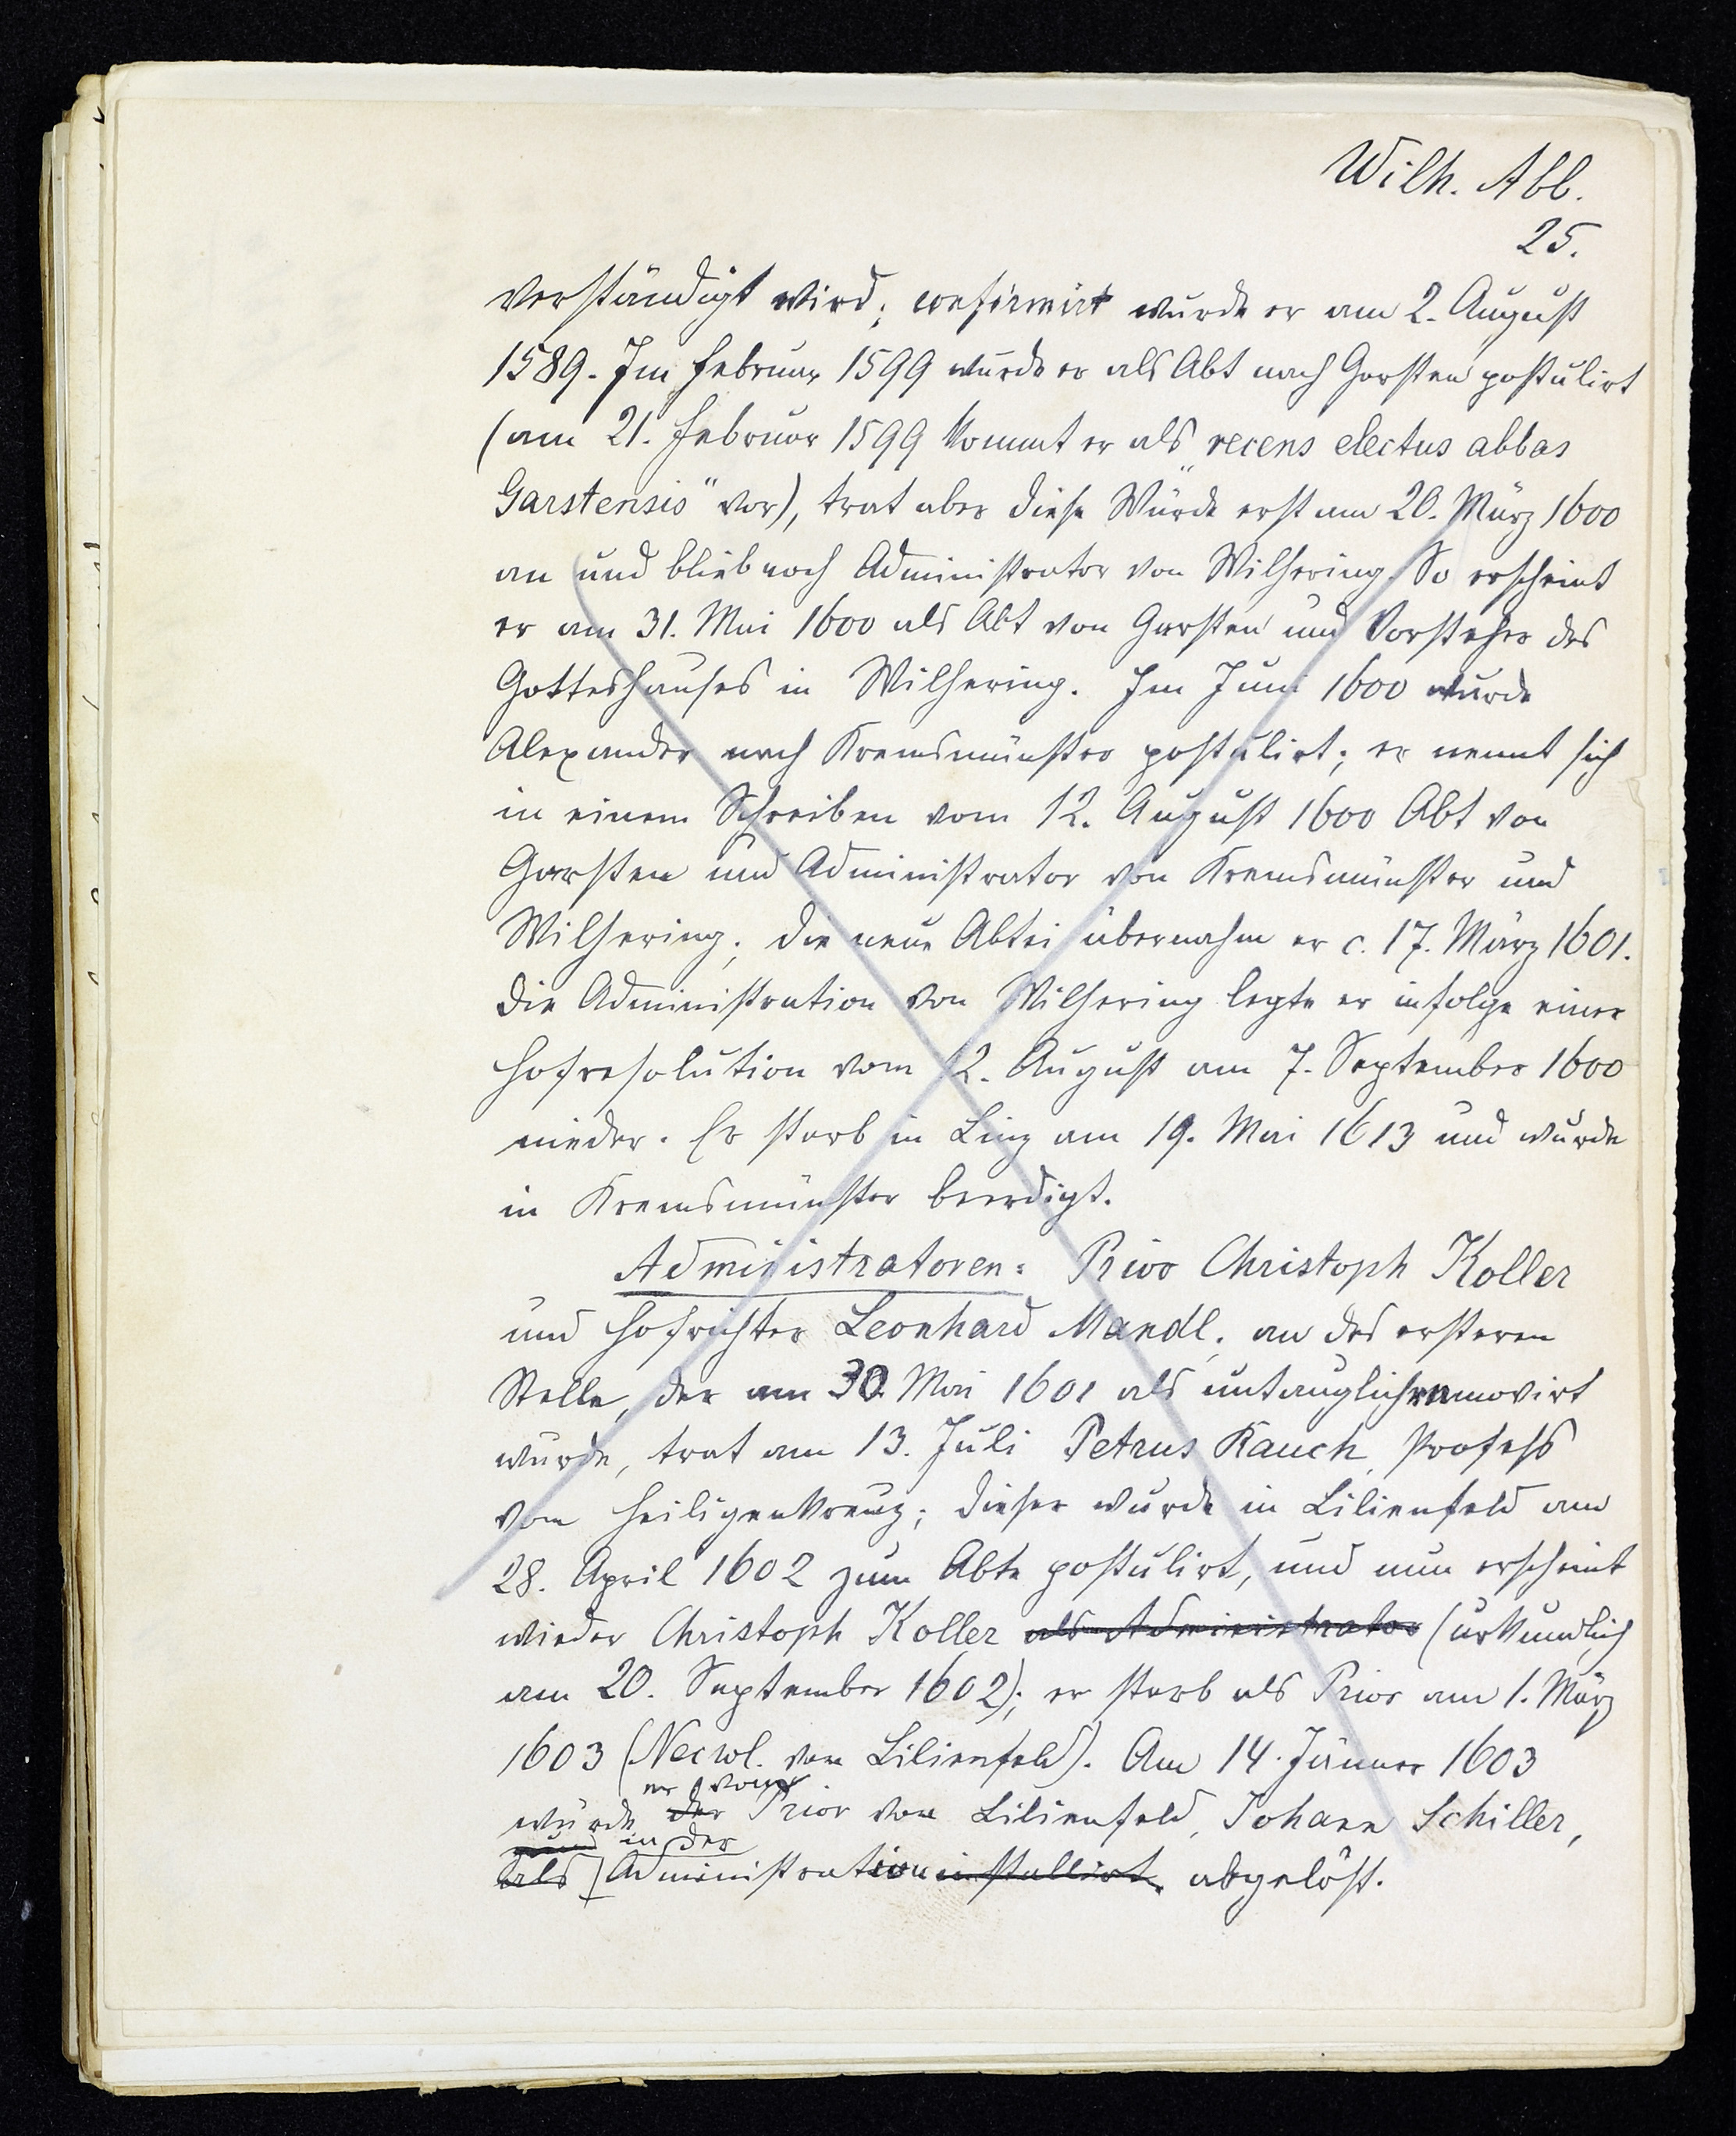 Wilh. Abb.
25.
verständigt wird; confirmirt wurde er am 2. August
1589. Im Februar 1599 wurde er als Abt nach Garsten postulirt
(am 21. Februar 1599 kommt er als „recens electus abbas
Garstensis" vor), trat aber diese Würde erst am 20. März 1600
an und blieb noch Administrator von Wilhering. So erscheint
er am 31. Mai 1600 als Abt von Garsten und Vorsteher des
Gotteshauses in Wilhering. Im Juni 1600 wurde
Alexander nach Kremsmünster postulirt; er nennt sich
in einem Schreiben vom 12. August 1600 Abt von
Garsten und Administrator von Kremsmünster und
Wilhering; die neue Abtei übernahm er c. 17. März 1601.
Die Administration von Wilhering legte er infolge einer
Hofresolution vom 12. August am 7. September 1600
nieder. Er starb in Linz am 19. Mai 1613 und wurde
in Kremsmünster beerdigt.
Administratoren: Prior Christoph Koller
und Hofrichter Leonhard Mandl; an des ersteren
Stelle, der am 30. Mai 1601 als untauglich amovirt
wurde, trat am 13. Juli Petrus Rauch, Profeß
von Heiligenkreuz; dieser wurde in Lilienfeld am
28. April 1602 zum Abte postulirt, und nun erscheint
wieder Christoph Koller als Administrator (urkundlich
am 20. September 1602); er starb als Prior am 1. März
1603 (Necrol. von Lilienfeld). Am 14. Jänner 1603
er vom
wurde der Prior von Lilienfeld, Johann Schiller,
und in der
als Administration installirt. abgelöst.